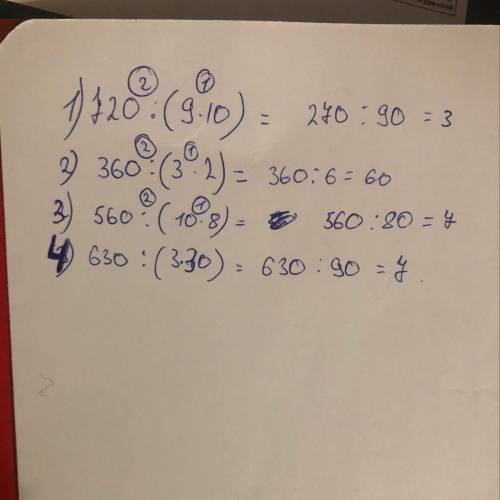 1) 720 : (9·10) = 270 : 90 = 3
2) 360 : (3·2) = 360 : 6 = 60
3) 560 : (10·8) = 560 : 80 = 7
4) 630 : (3·30) = 630 : 90 = 7